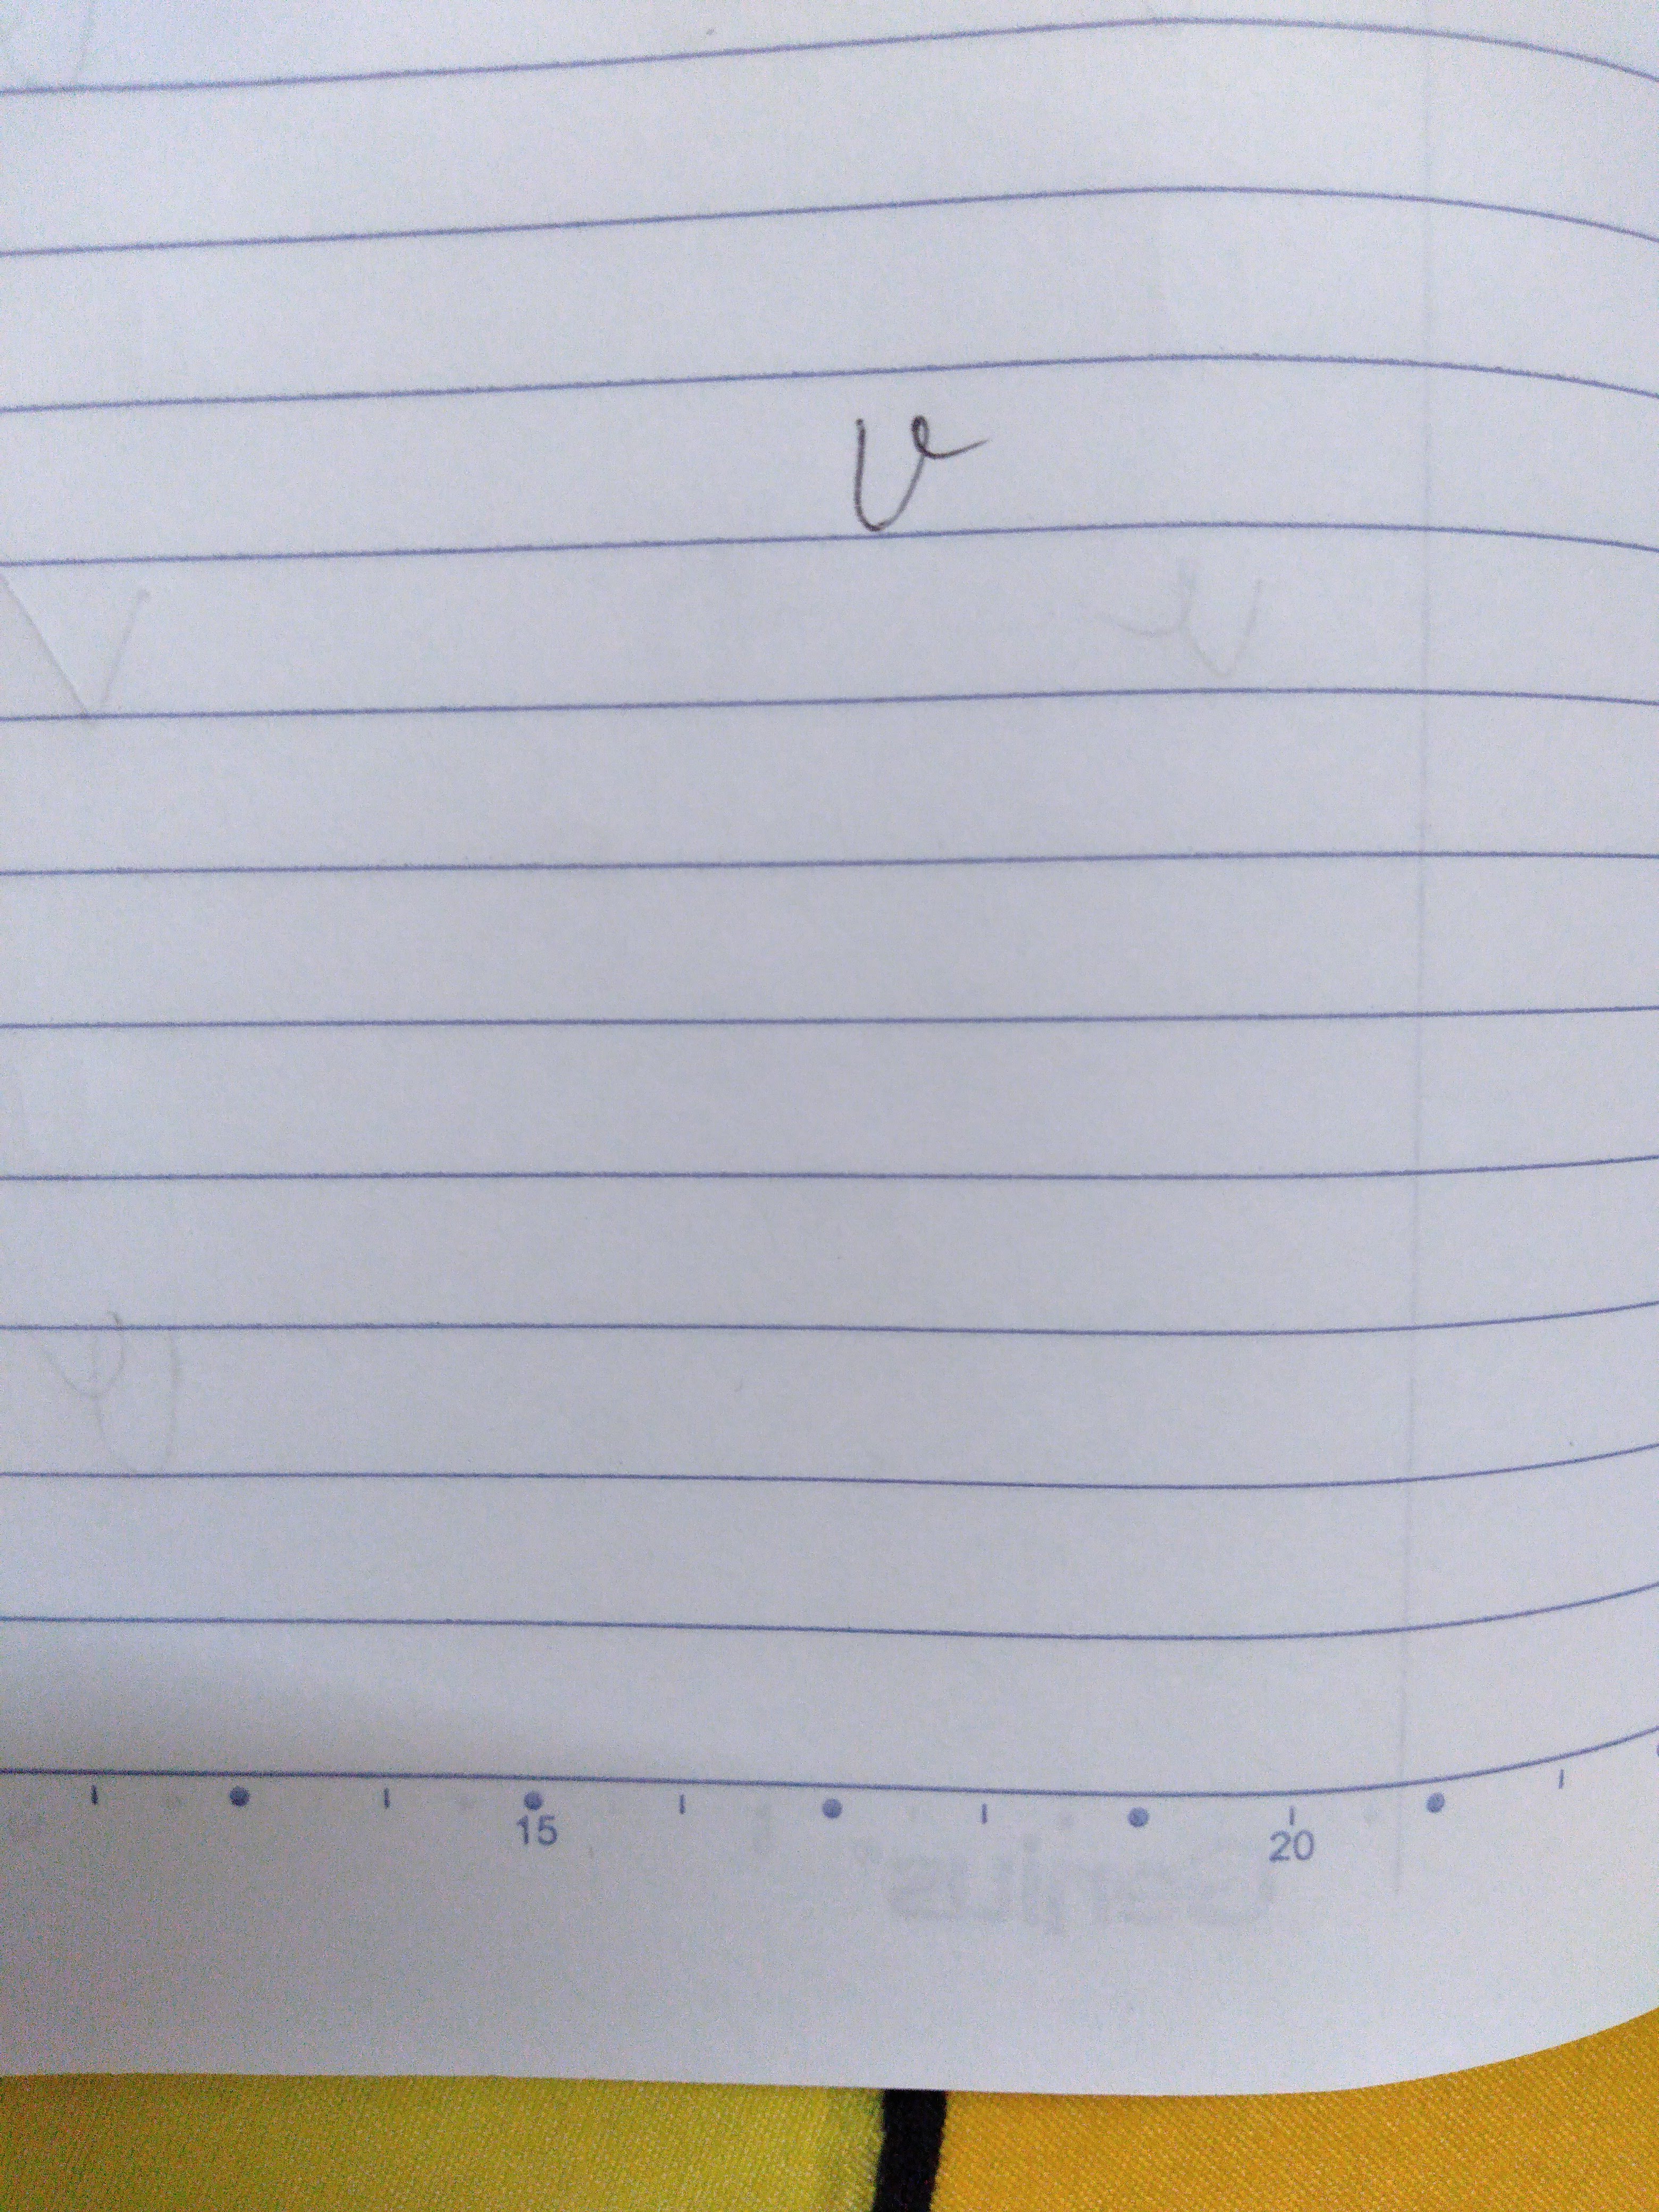 v
15 20